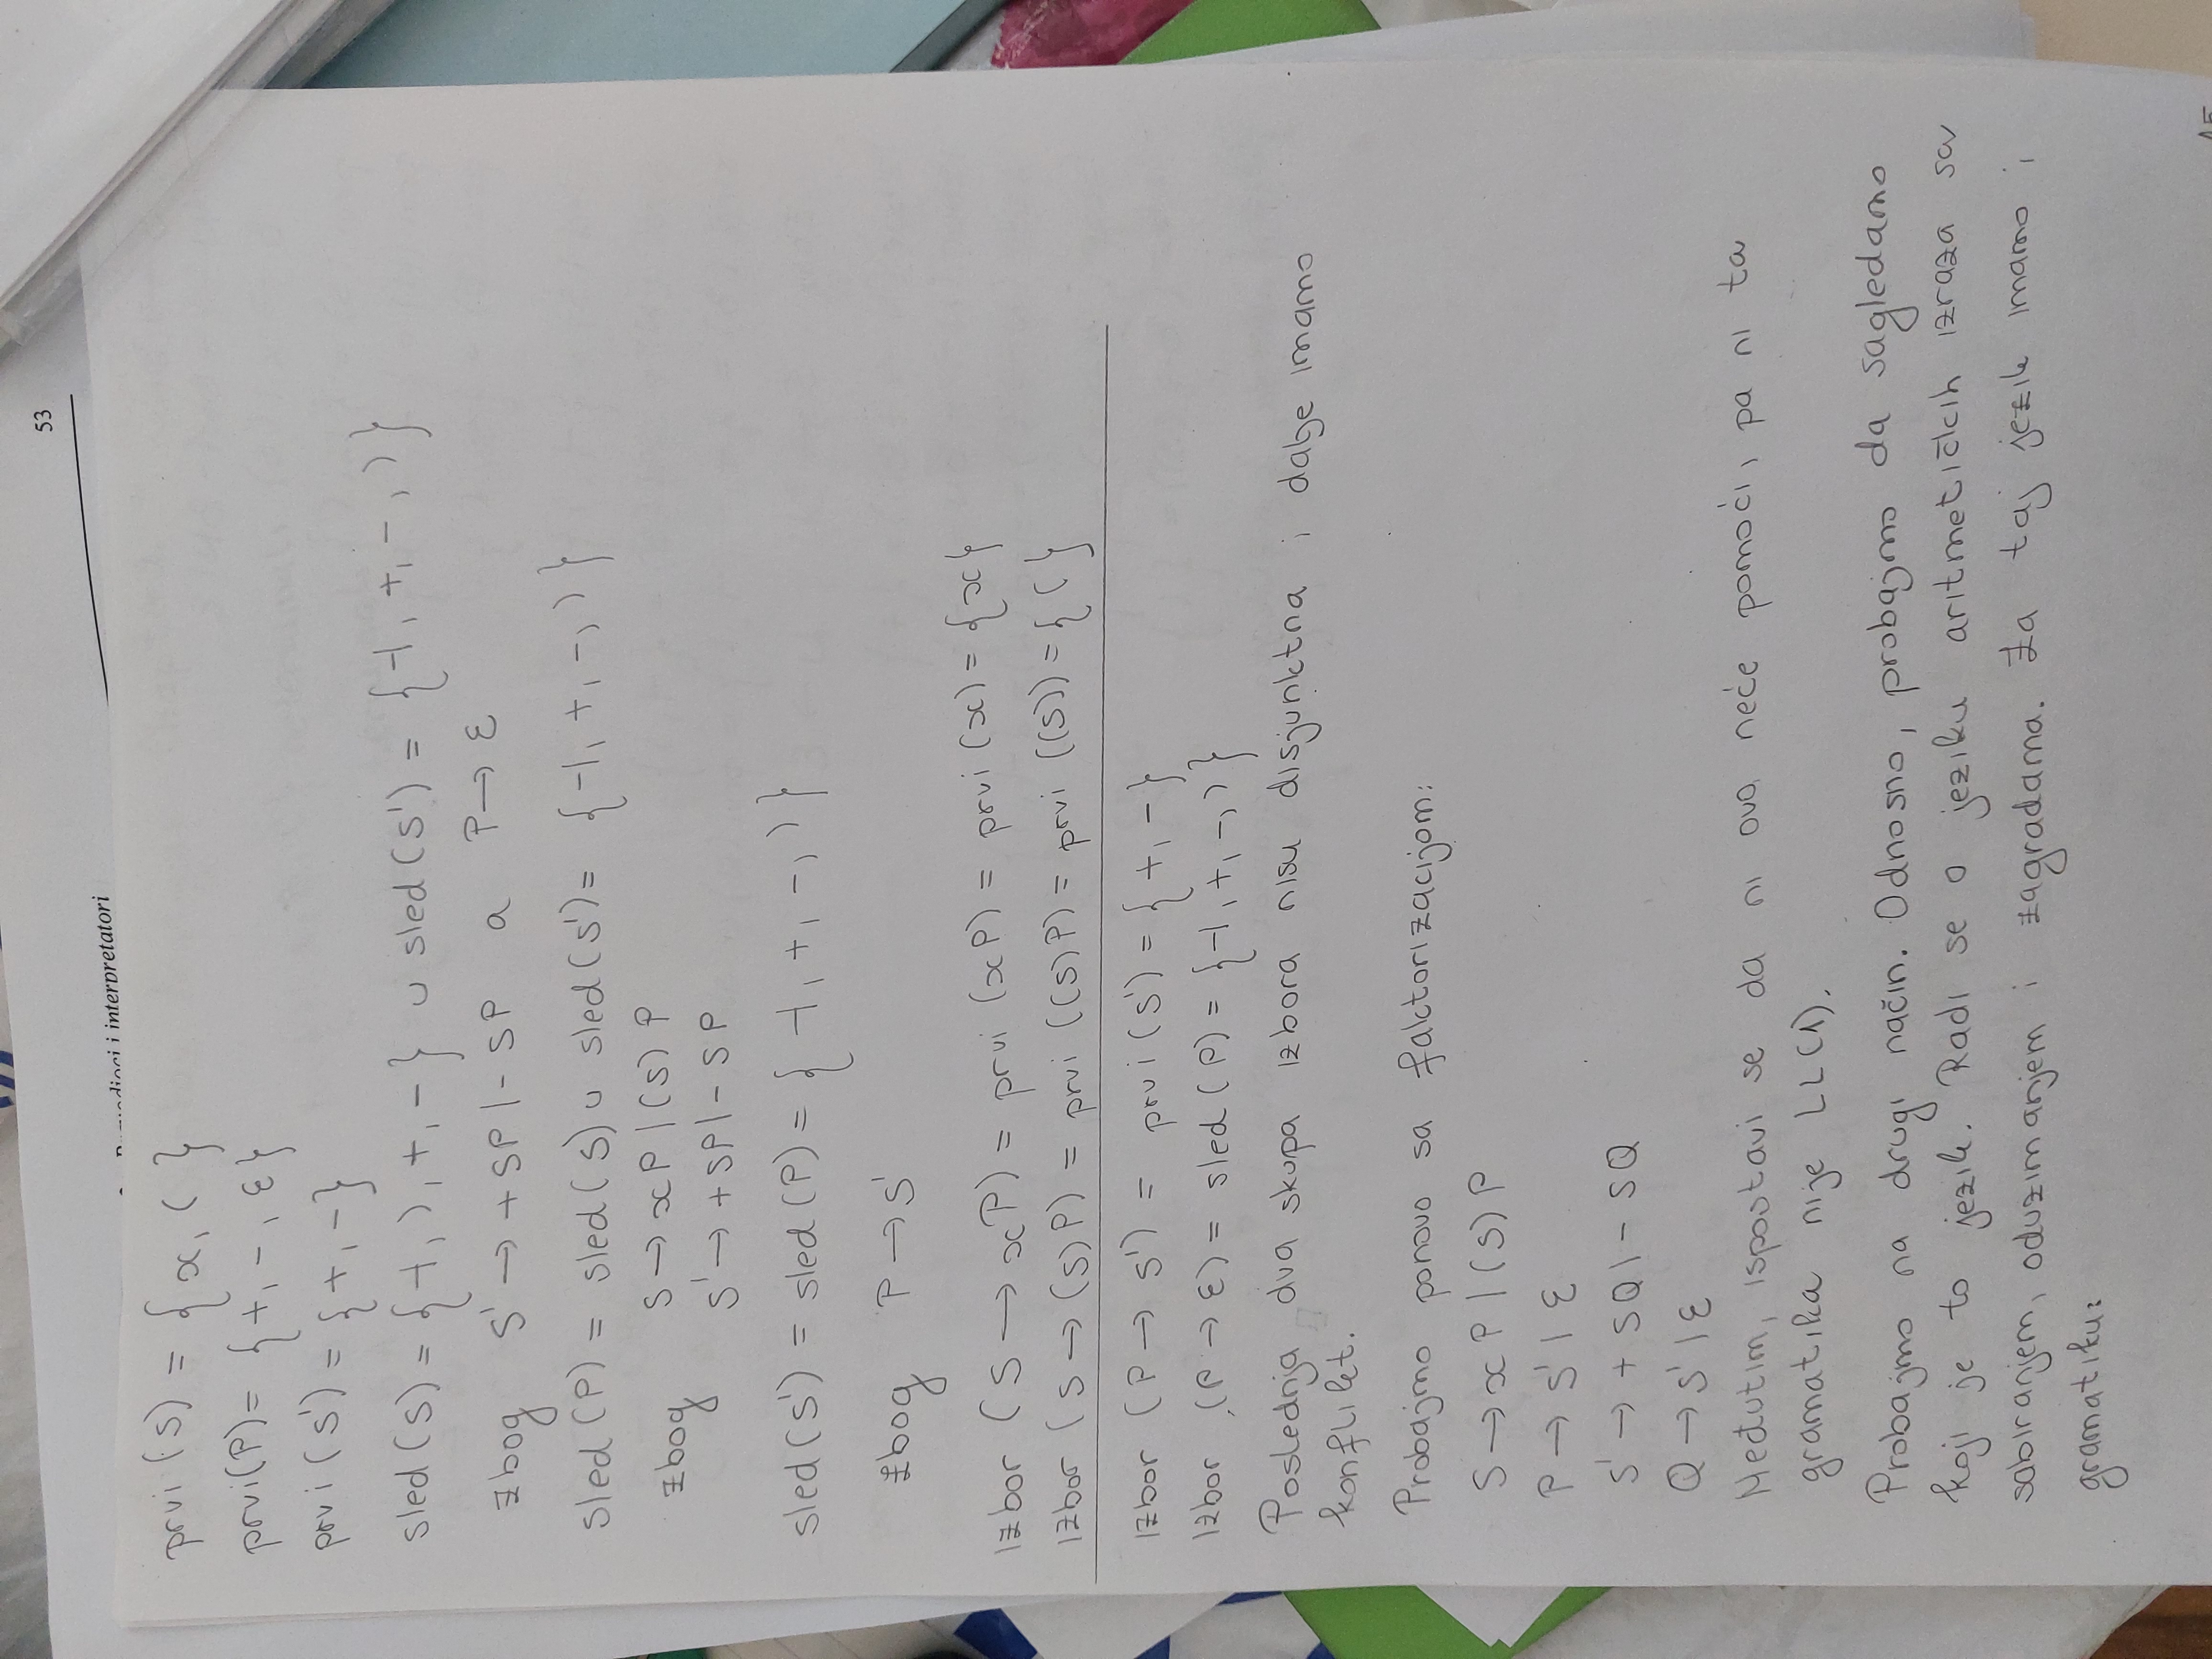 53
i interpretatori
prvi (S) = { x, ( }
prvi(P) = { +, -, ε }
prvi (S') = { +, - }
sled (S) = { ⊣, ), +, - } ∪ sled (S') = { ⊣, +, -, ) }
zbog S' → + SP | - SP a P → ε
sled (P) = sled (S) ∪ sled (S') = { ⊣, +, -, ) }
zbog S → xP | (S) P
S' → + SP | - SP
sled (S') = sled (P) = { ⊣, +, -, ) }
zbog P → S'
Izbor (S → xP) = prvi (xP) = prvi (x) = {x}
Izbor (S → (S) P) = prvi ((S) P) = prvi ((S)) = { ( }
Izbor (P → S') = prvi (S') = { +, - }
Izbor (P → ε) = sled (P) = { ⊣, +, -, ) }
Poslednja dva skupa izbora nisu disjunktna i dalje imamo
konflikt.
Probajmo ponovo sa faktorizacijom:
S → x P | (S) P
P → S' | ε
S' → + SQ | - SQ
Q → S' | ε
Međutim, ispostavi se da ni ovo neće pomoći, pa ni ta
gramatika nije LL(1).
Probajmo na drugi način. Odnosno, probajmo da sagledamo
koji je to jezik. Radi se o jeziku aritmetičkih izraza sa
sabiranjem, oduzimanjem i zagradama. Za taj jezik imamo i
gramatiku: